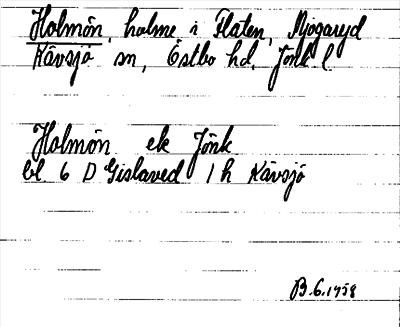 Holmön, holme i Flaten, Mjogaryd
Kävsjö sn, Östbo hd, Jönk l
Holmön ek Jönk
bl 6 D Gislaved 1 h Kävsjö
B. 6. 1958